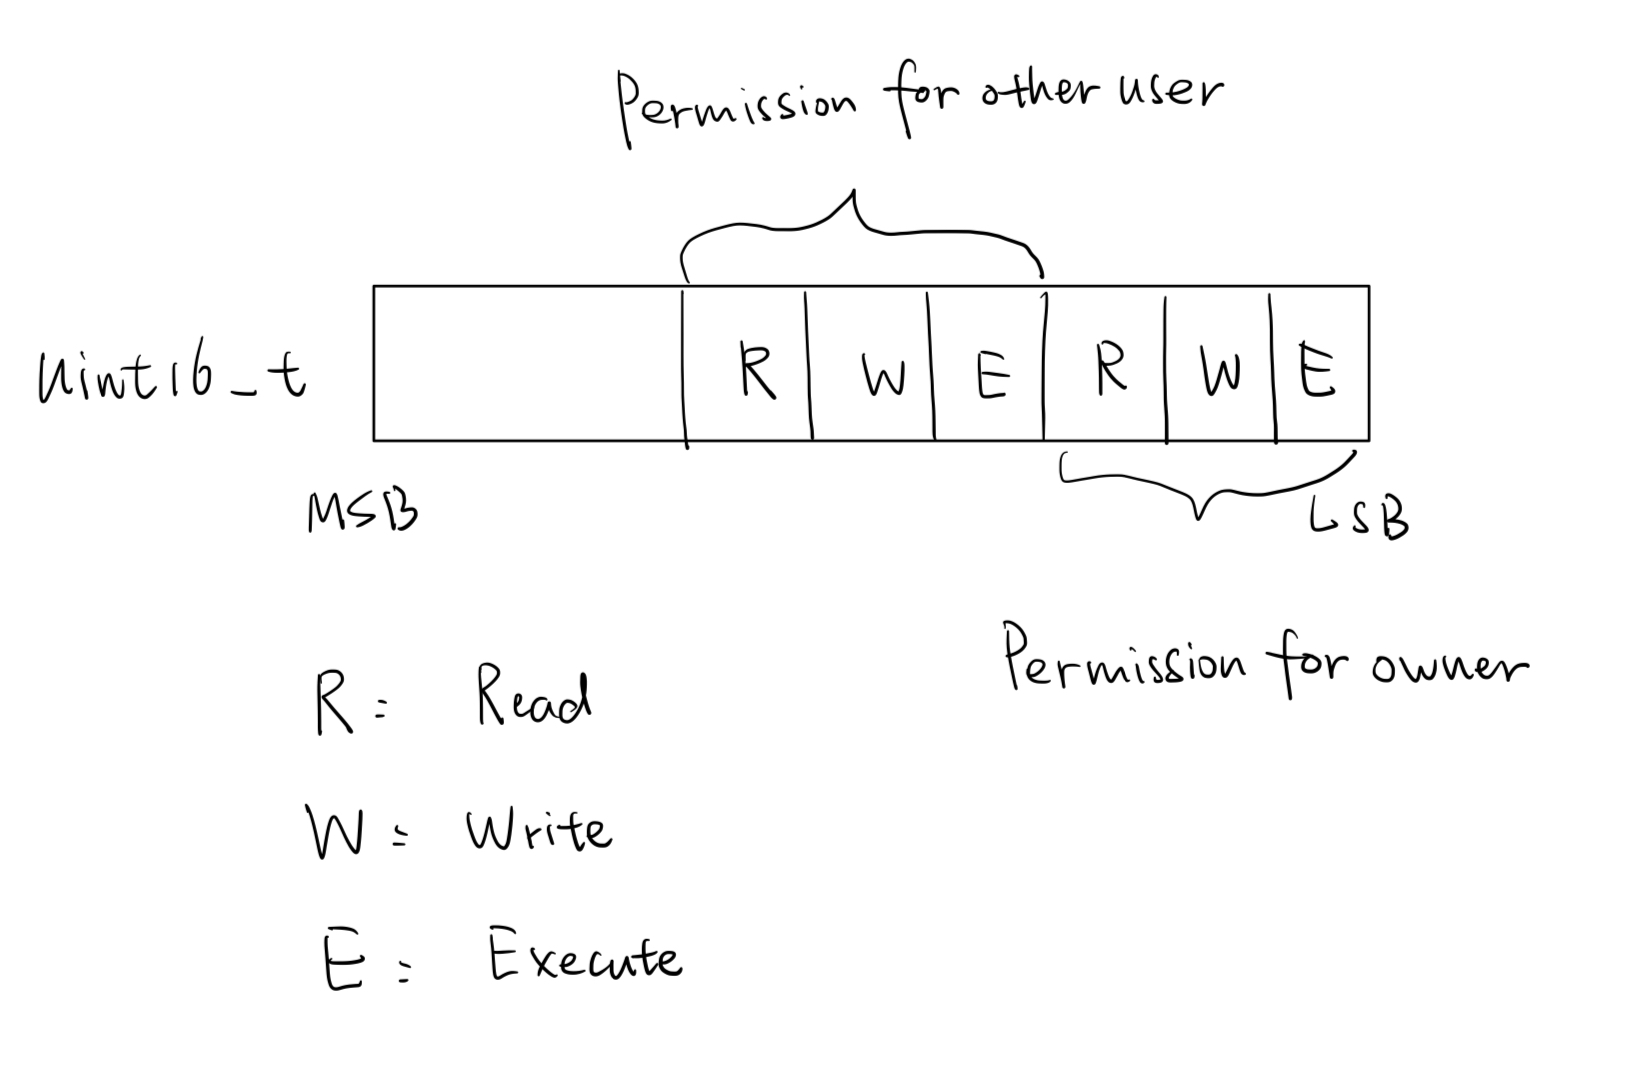 Permission for other user
uint16_t R W E R W E
MSB LSB
Permission for owner
R: Read
W: Write
E: Execute